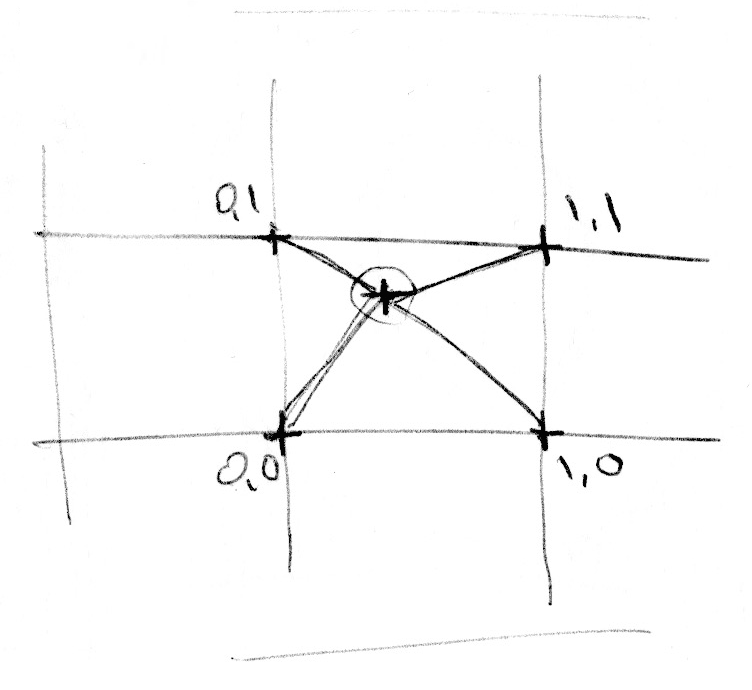 0,1
1,1
0,0
1,0